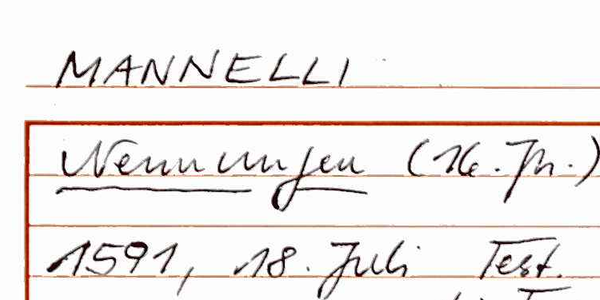 MANNELLI
Nennungen (16. Jh.)
1591, 18. Juli Test.